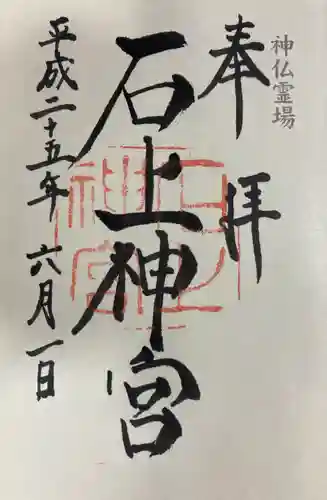 神仏霊場
奉拝
石上神宮
平成二十五年 六月一日